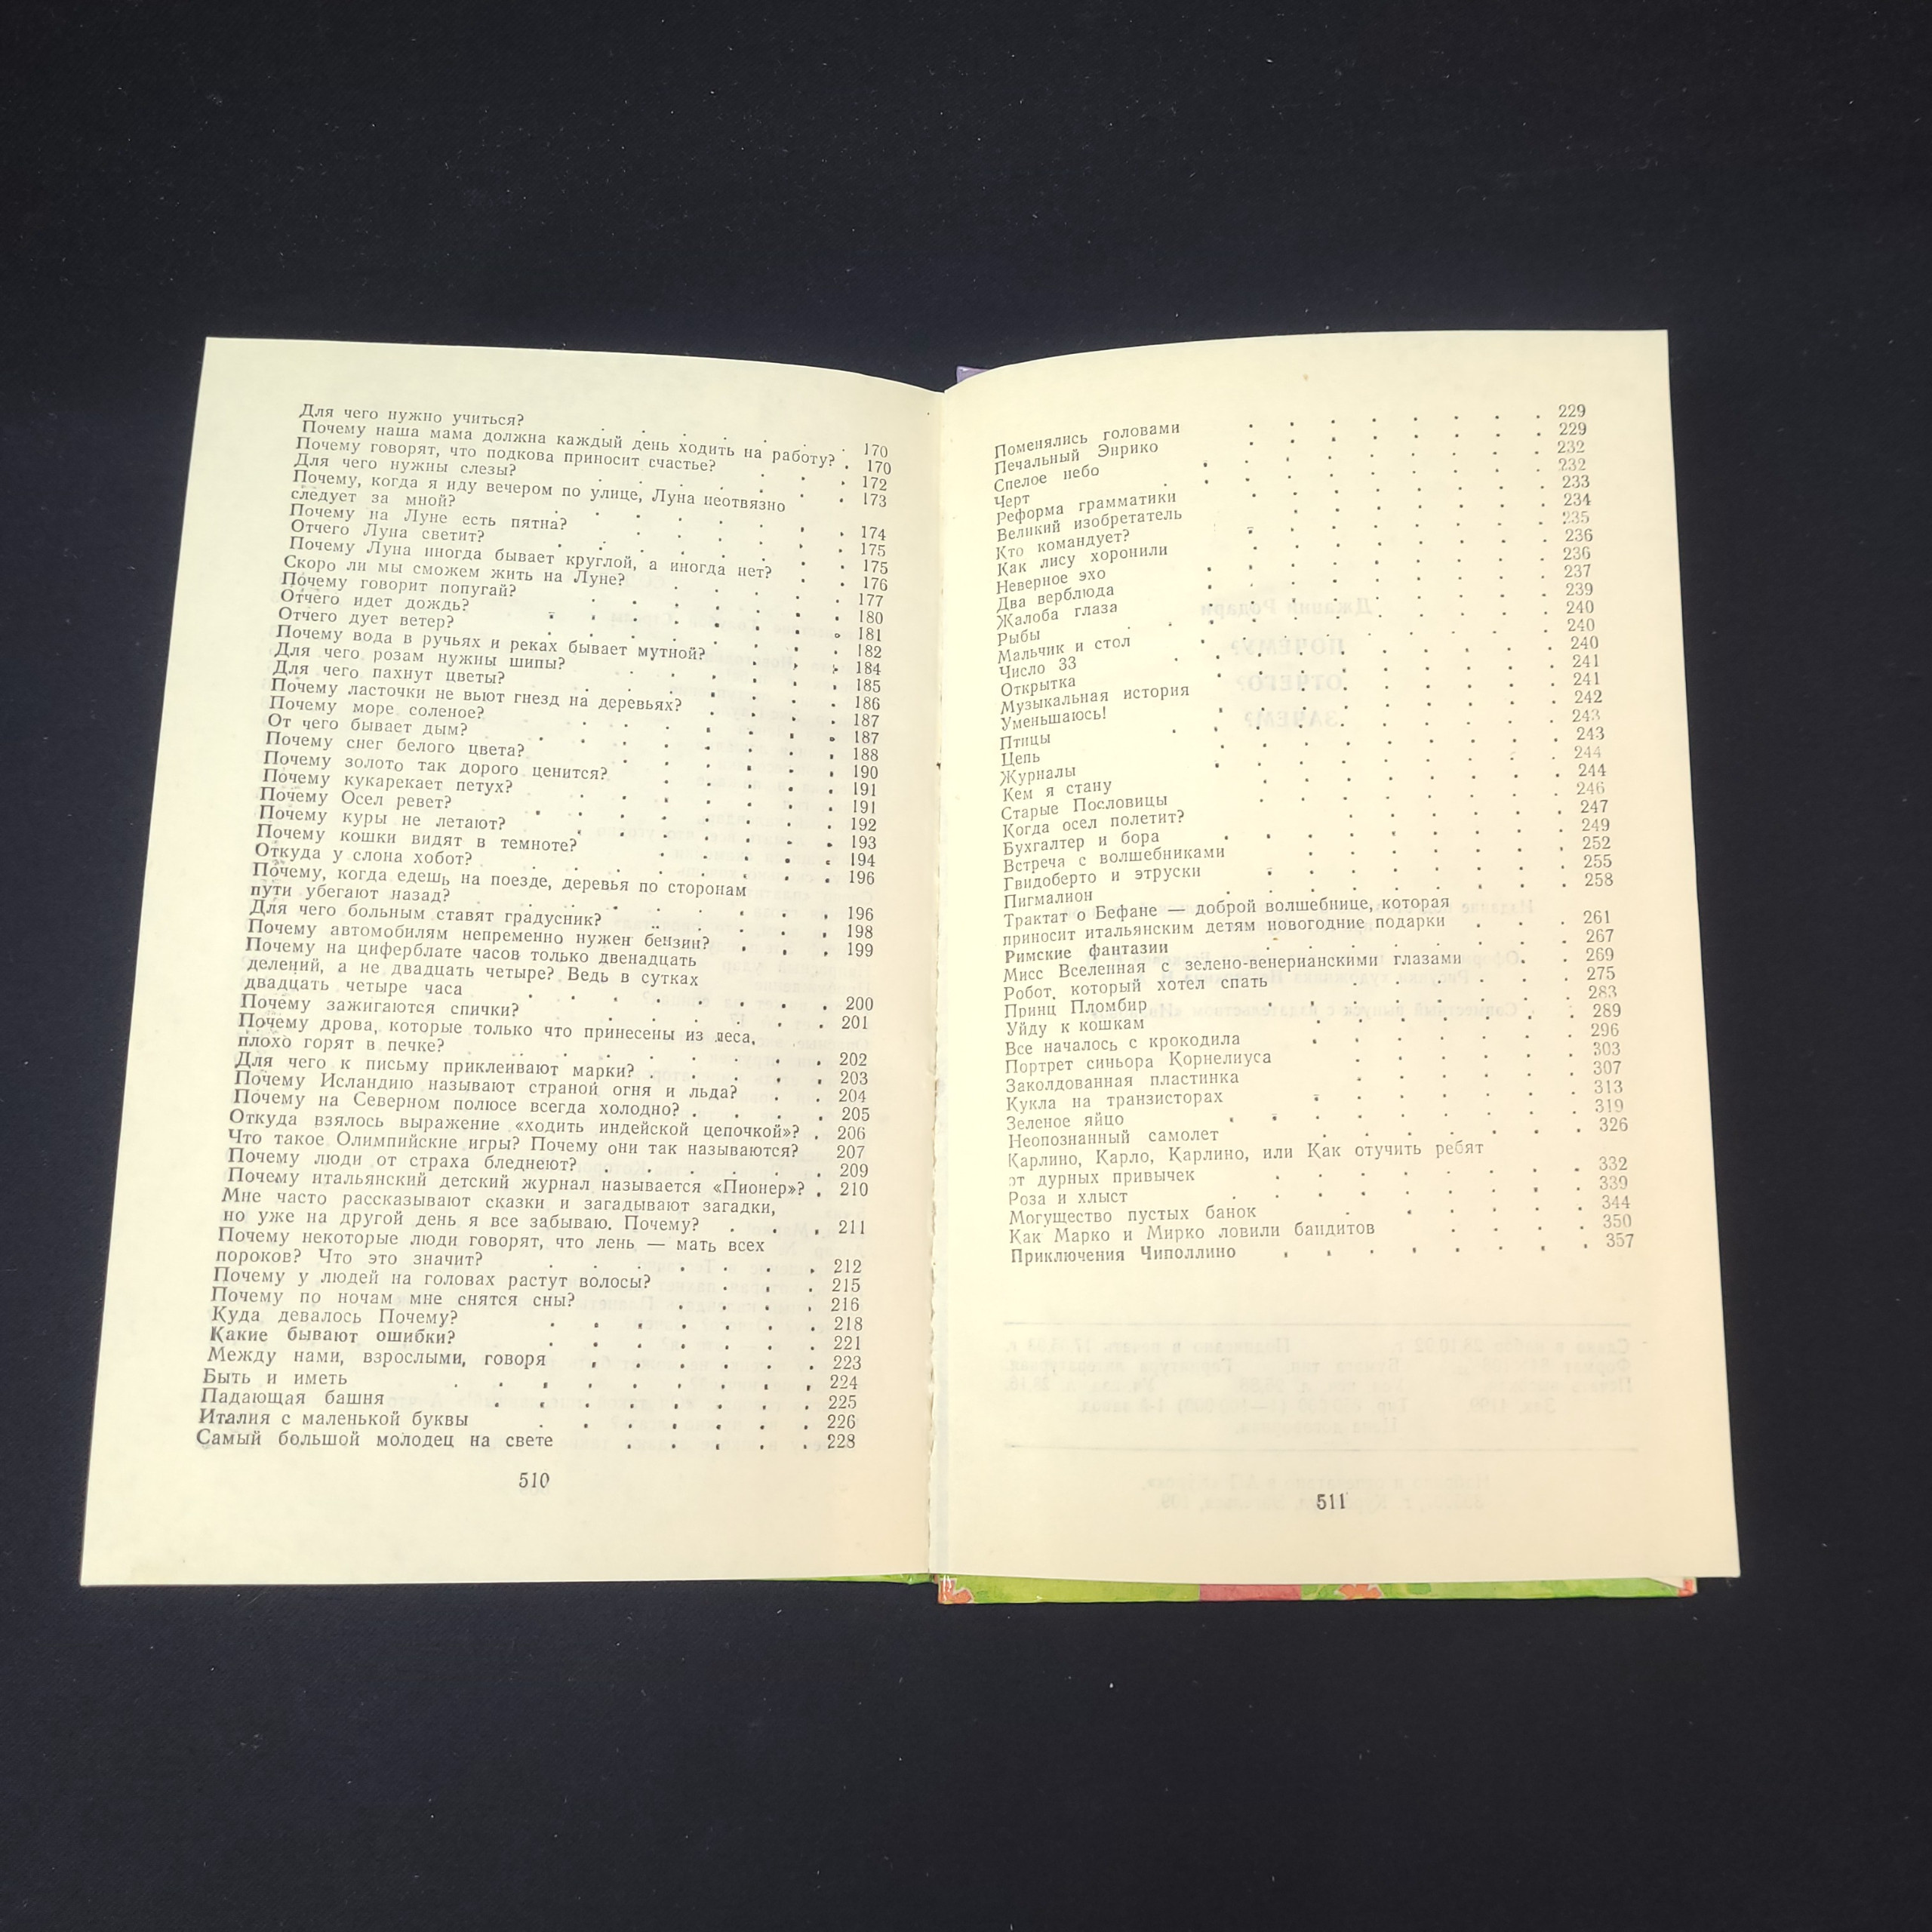 Для чего нужно учиться? 170
Почему наша мама должна каждый день ходить на работу? 170
Почему говорят, что подкова приносит счастье? 172
Для чего нужны слезы? 173
Почему, когда я иду вечером по улице, Луна неотвязно
следует за мной? 174
Почему на Луне есть пятна? 175
Отчего Луна светит? 175
Почему Луна иногда бывает круглой, а иногда нет? 176
Скоро ли мы сможем жить на Луне? 177
Почему говорит попугай? 180
Отчего идет дождь? 181
Отчего дует ветер? 182
Почему вода в ручьях и реках бывает мутной? 184
Для чего розам нужны шипы? 185
Для чего пахнут цветы? 186
Почему ласточки не вьют гнезд на деревьях? 187
Почему море соленое? 187
От чего бывает дым? 188
Почему снег белого цвета? 190
Почему золото так дорого ценится? 191
Почему кукарекает петух? 191
Почему Осел ревет? 192
Почему куры не летают? 193
Почему кошки видят в темноте? 194
Откуда у слона хобот? 196
Почему, когда едешь на поезде, деревья по сторонам
пути убегают назад? 196
Для чего больным ставят градусник? 198
Почему автомобилям непременно нужен бензин? 199
Почему на циферблате часов только двенадцать
делений, а не двадцать четыре? Ведь в сутках
двадцать четыре часа 200
Почему зажигаются спички? 201
Почему дрова, которые только что принесены из леса,
плохо горят в печке? 202
Для чего к письму приклеивают марки? 203
Почему Исландию называют страной огня и льда? 204
Почему на Северном полюсе всегда холодно? 205
Откуда взялось выражение «ходить индейской цепочкой»? 206
Что такое Олимпийские игры? Почему они так называются? 207
Почему люди от страха бледнеют? 209
Почему итальянский детский журнал называется «Пионер»? 210
Мне часто рассказывают сказки и загадывают загадки,
но уже на другой день я все забываю. Почему? 211
Почему некоторые люди говорят, что лень — мать всех
пороков? Что это значит? 212
Почему у людей на головах растут волосы? 215
Почему по ночам мне снятся сны? 216
Куда девалось Почему? 218
Какие бывают ошибки? 221
Между нами, взрослыми, говоря 223
Быть и иметь 224
Падающая башня 225
Италия с маленькой буквы 226
Самый большой молодец на свете 228
510
Поменялись головами 229
Печальный Энрико 229
Спелое небо 232
Черт 232
Реформа грамматики 233
Великий изобретатель 234
Кто командует? 235
Как лису хоронили 236
Неверное эхо 236
Два верблюда 237
Жалоба глаза 239
Рыбы 240
Мальчик и стол 240
Число 33 240
Открытка 241
Музыкальная история 241
Уменьшаюсь! 242
Птицы 243
Цепь 243
Журналы 244
Кем я стану 244
Старые Пословицы 246
Когда осел полетит? 247
Бухгалтер и бора 249
Встреча с волшебниками 252
Гвидоберто и этруски 255
Пигмалион 258
Трактат о Бефане — доброй волшебнице, которая
приносит итальянским детям новогодние подарки 261
Римские фантазии 267
Мисс Вселенная с зелено-венерианскими глазами 269
Робот, который хотел спать 275
Принц Пломбир 283
Уйду к кошкам 289
Все началось с крокодила 296
Портрет синьора Корнелиуса 303
Заколдованная пластинка 307
Кукла на транзисторах 313
Зеленое яйцо 319
Неопознанный самолет 326
Карлино, Карло, Карлино, или Как отучить ребят
от дурных привычек 332
Роза и хлыст 339
Могущество пустых банок 344
Как Марко и Мирко ловили бандитов 350
Приключения Чиполлино 357
511